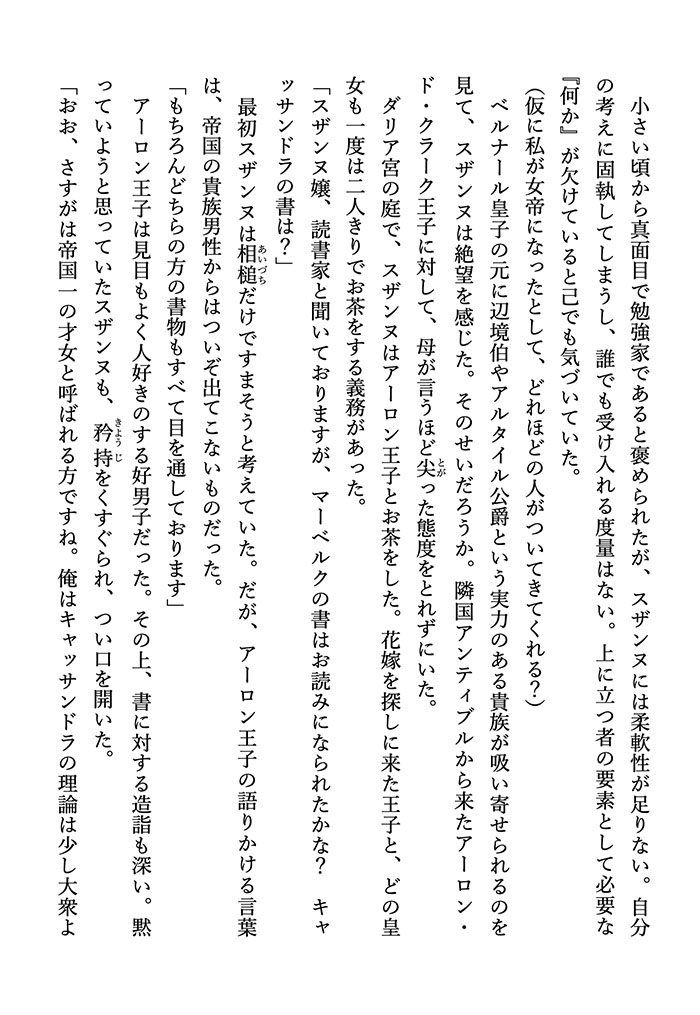 小さい頃から真面目で勉強家であると褒められたが、スザンヌには柔軟性が足りない。自分
の考えに固執してしまうし、誰でも受け入れる度量はない。上に立つ者の要素として必要な
『何か』が欠けていると己でも気づいていた。
（仮に私が女帝になったとして、どれほどの人がついてきてくれる？）
　ベルナール皇子の元に辺境伯やアルタイル公爵という実力のある貴族が吸い寄せられるのを
見て、スザンヌは絶望を感じた。そのせいだろうか。隣国アンティブルから来たアーロン・
ド・クラーク王子に対して、母が言うほど尖った態度をとれずにいた。
　ダリア宮の庭で、スザンヌはアーロン王子とお茶をした。花嫁を探しに来た王子と、どの皇
女も一度は二人きりでお茶をする義務があった。
「スザンヌ嬢、読書家と聞いておりますが、マーベルクの書はお読みになられたかな？　キャ
ッサンドラの書は？」
　最初スザンヌは相槌だけですまそうと考えていた。だが、アーロン王子の語りかける言葉
は、帝国の貴族男性からはついぞ出てこないものだった。
「もちろんどちらの方の書物もすべて目を通しております」
　アーロン王子は見目もよく人好きのする好男子だった。その上、書に対する造詣も深い。黙
っていようと思っていたスザンヌも、矜持をくすぐられ、つい口を開いた。
「おお、さすがは帝国一の才女と呼ばれる方ですね。俺はキャッサンドラの理論は少し大衆よ